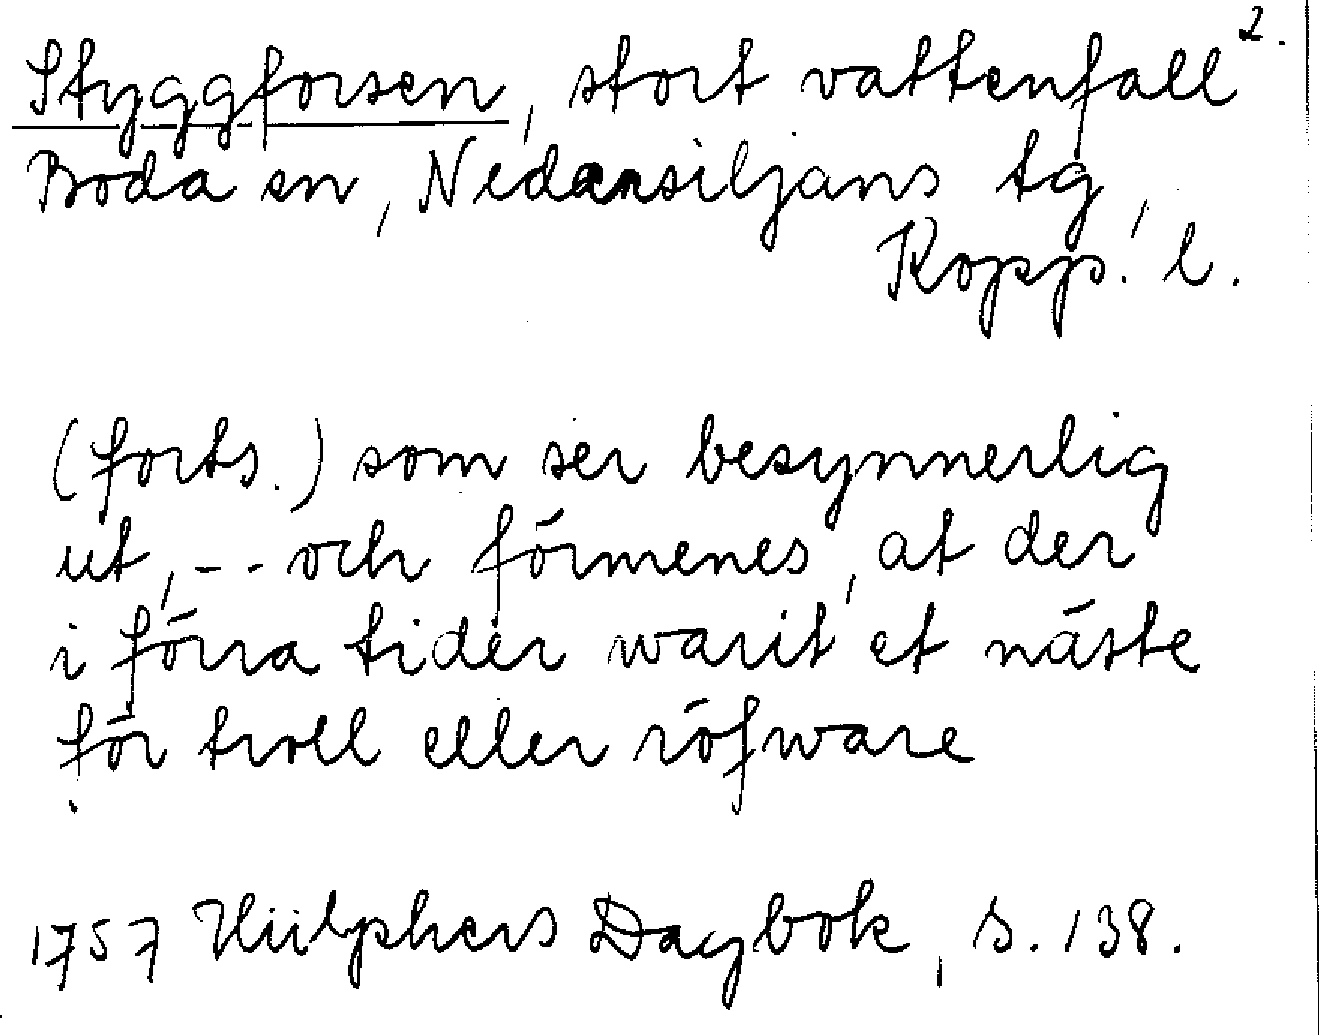 2.
Styggforsen, stort vattenfall
Boda sn, Nedansiljans tg,
Kopp. l.
(forts.) som ser besynnerlig
ut, -- och förmenes, at der
i förra tider warit et näste
för troll eller röfware
1757 Hülphers Dagbok, s. 138.